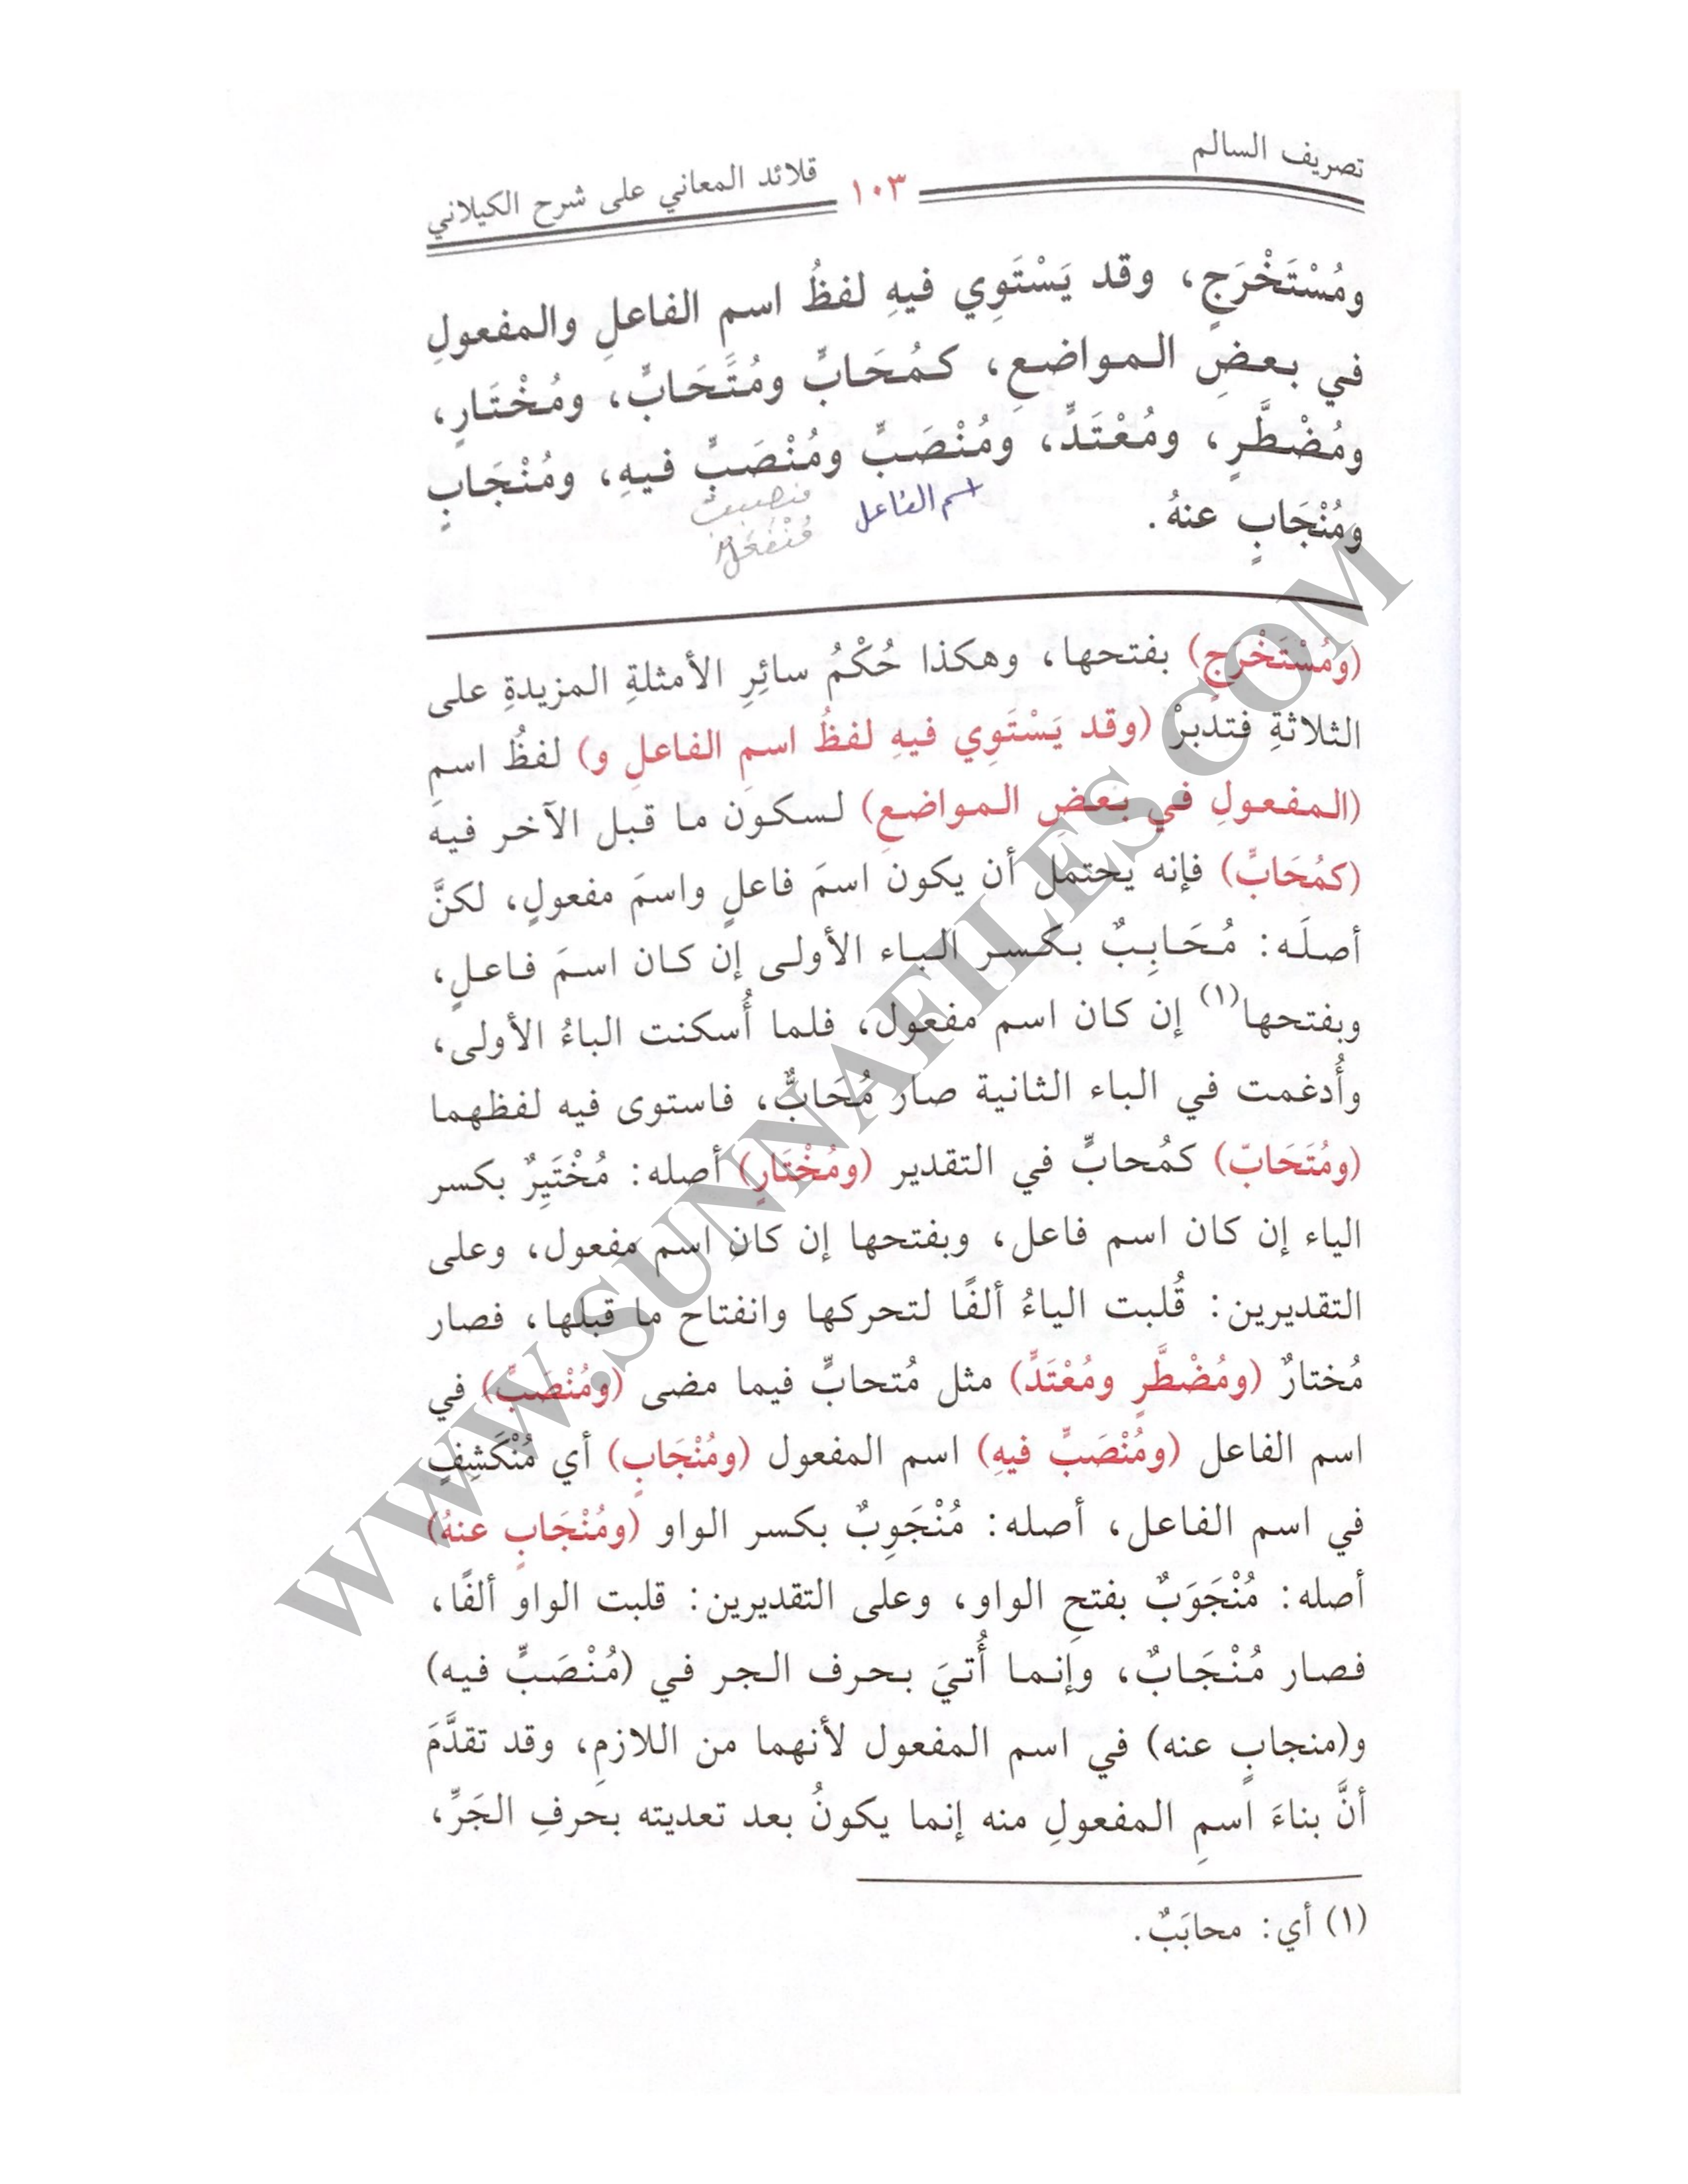 تصريف السالم ١٠٣ قلائد المعاني على شرح الكيلاني
ومُسْتَخْرَجٍ، وقد يَسْتَوِي فيهِ لفظُ اسمِ الفاعلِ والمفعولِ
في بعضِ المواضعِ، كمُحَابٍّ ومُتَحَابٍّ، ومُخْتَارٍ،
ومُضْطَّرٍ، ومُعْتَدٍّ، ومُنْصَبٍّ ومُنْصَبٍّ فيهِ، ومُنْجَابٍ
ومُنْجَابٍ عنهُ.
اسم الفاعل
(ومُسْتَخْرَجٍ) بفتحها، وهكذا حُكْمُ سائِرِ الأمثلةِ المزيدةِ على
الثلاثةِ فتدبرْ (وقد يَسْتَوِي فيهِ لفظُ اسمِ الفاعلِ و) لفظُ اسمِ
(المفعولِ في بعضِ المواضعِ) لسكون ما قبل الآخر فيه
(كمُحَابٍّ) فإنه يحتمل أن يكون اسمَ فاعلٍ واسمَ مفعولٍ، لكنَّ
أصلَه: مُحَابِبٌ بكسر الباء الأولى إن كان اسمَ فاعلٍ،
وبفتحها(١) إن كان اسم مفعول، فلما أُسكنت الباءُ الأولى،
وأُدغمت في الباء الثانية صار مُحَابٌّ، فاستوى فيه لفظهما
(ومُتَحَابّ) كمُحابٍّ في التقدير (ومُخْتَارٍ) أصله: مُخْتَيِرٌ بكسر
الياء إن كان اسم فاعل، وبفتحها إن كان اسم مفعول، وعلى
التقديرين: قُلبت الياءُ ألفًا لتحركها وانفتاح ما قبلها، فصار
مُختارٌ (ومُضْطَّرٍ ومُعْتَدٍّ) مثل مُتحابٍّ فيما مضى (ومُنْصَبٍّ) في
اسم الفاعل (ومُنْصَبٍّ فيهِ) اسم المفعول (ومُنْجَابٍ) أي مُنْكَشِفٍ
في اسم الفاعل، أصله: مُنْجَوِبٌ بكسر الواو (ومُنْجَابٍ عنهُ)
أصله: مُنْجَوَبٌ بفتحِ الواو، وعلى التقديرين: قلبت الواو ألفًا،
فصار مُنْجَابٌ، وإنما أُتيَ بحرف الجر في (مُنْصَبٍّ فيه)
و(منجابٍ عنه) في اسم المفعول لأنهما من اللازمِ، وقد تقدَّمَ
أنَّ بناءَ اسمِ المفعولِ منه إنما يكونُ بعد تعديته بحرفِ الجَرِّ،
(١) أي: محابَبٌ.
WWW.SUNNAFILES.COM